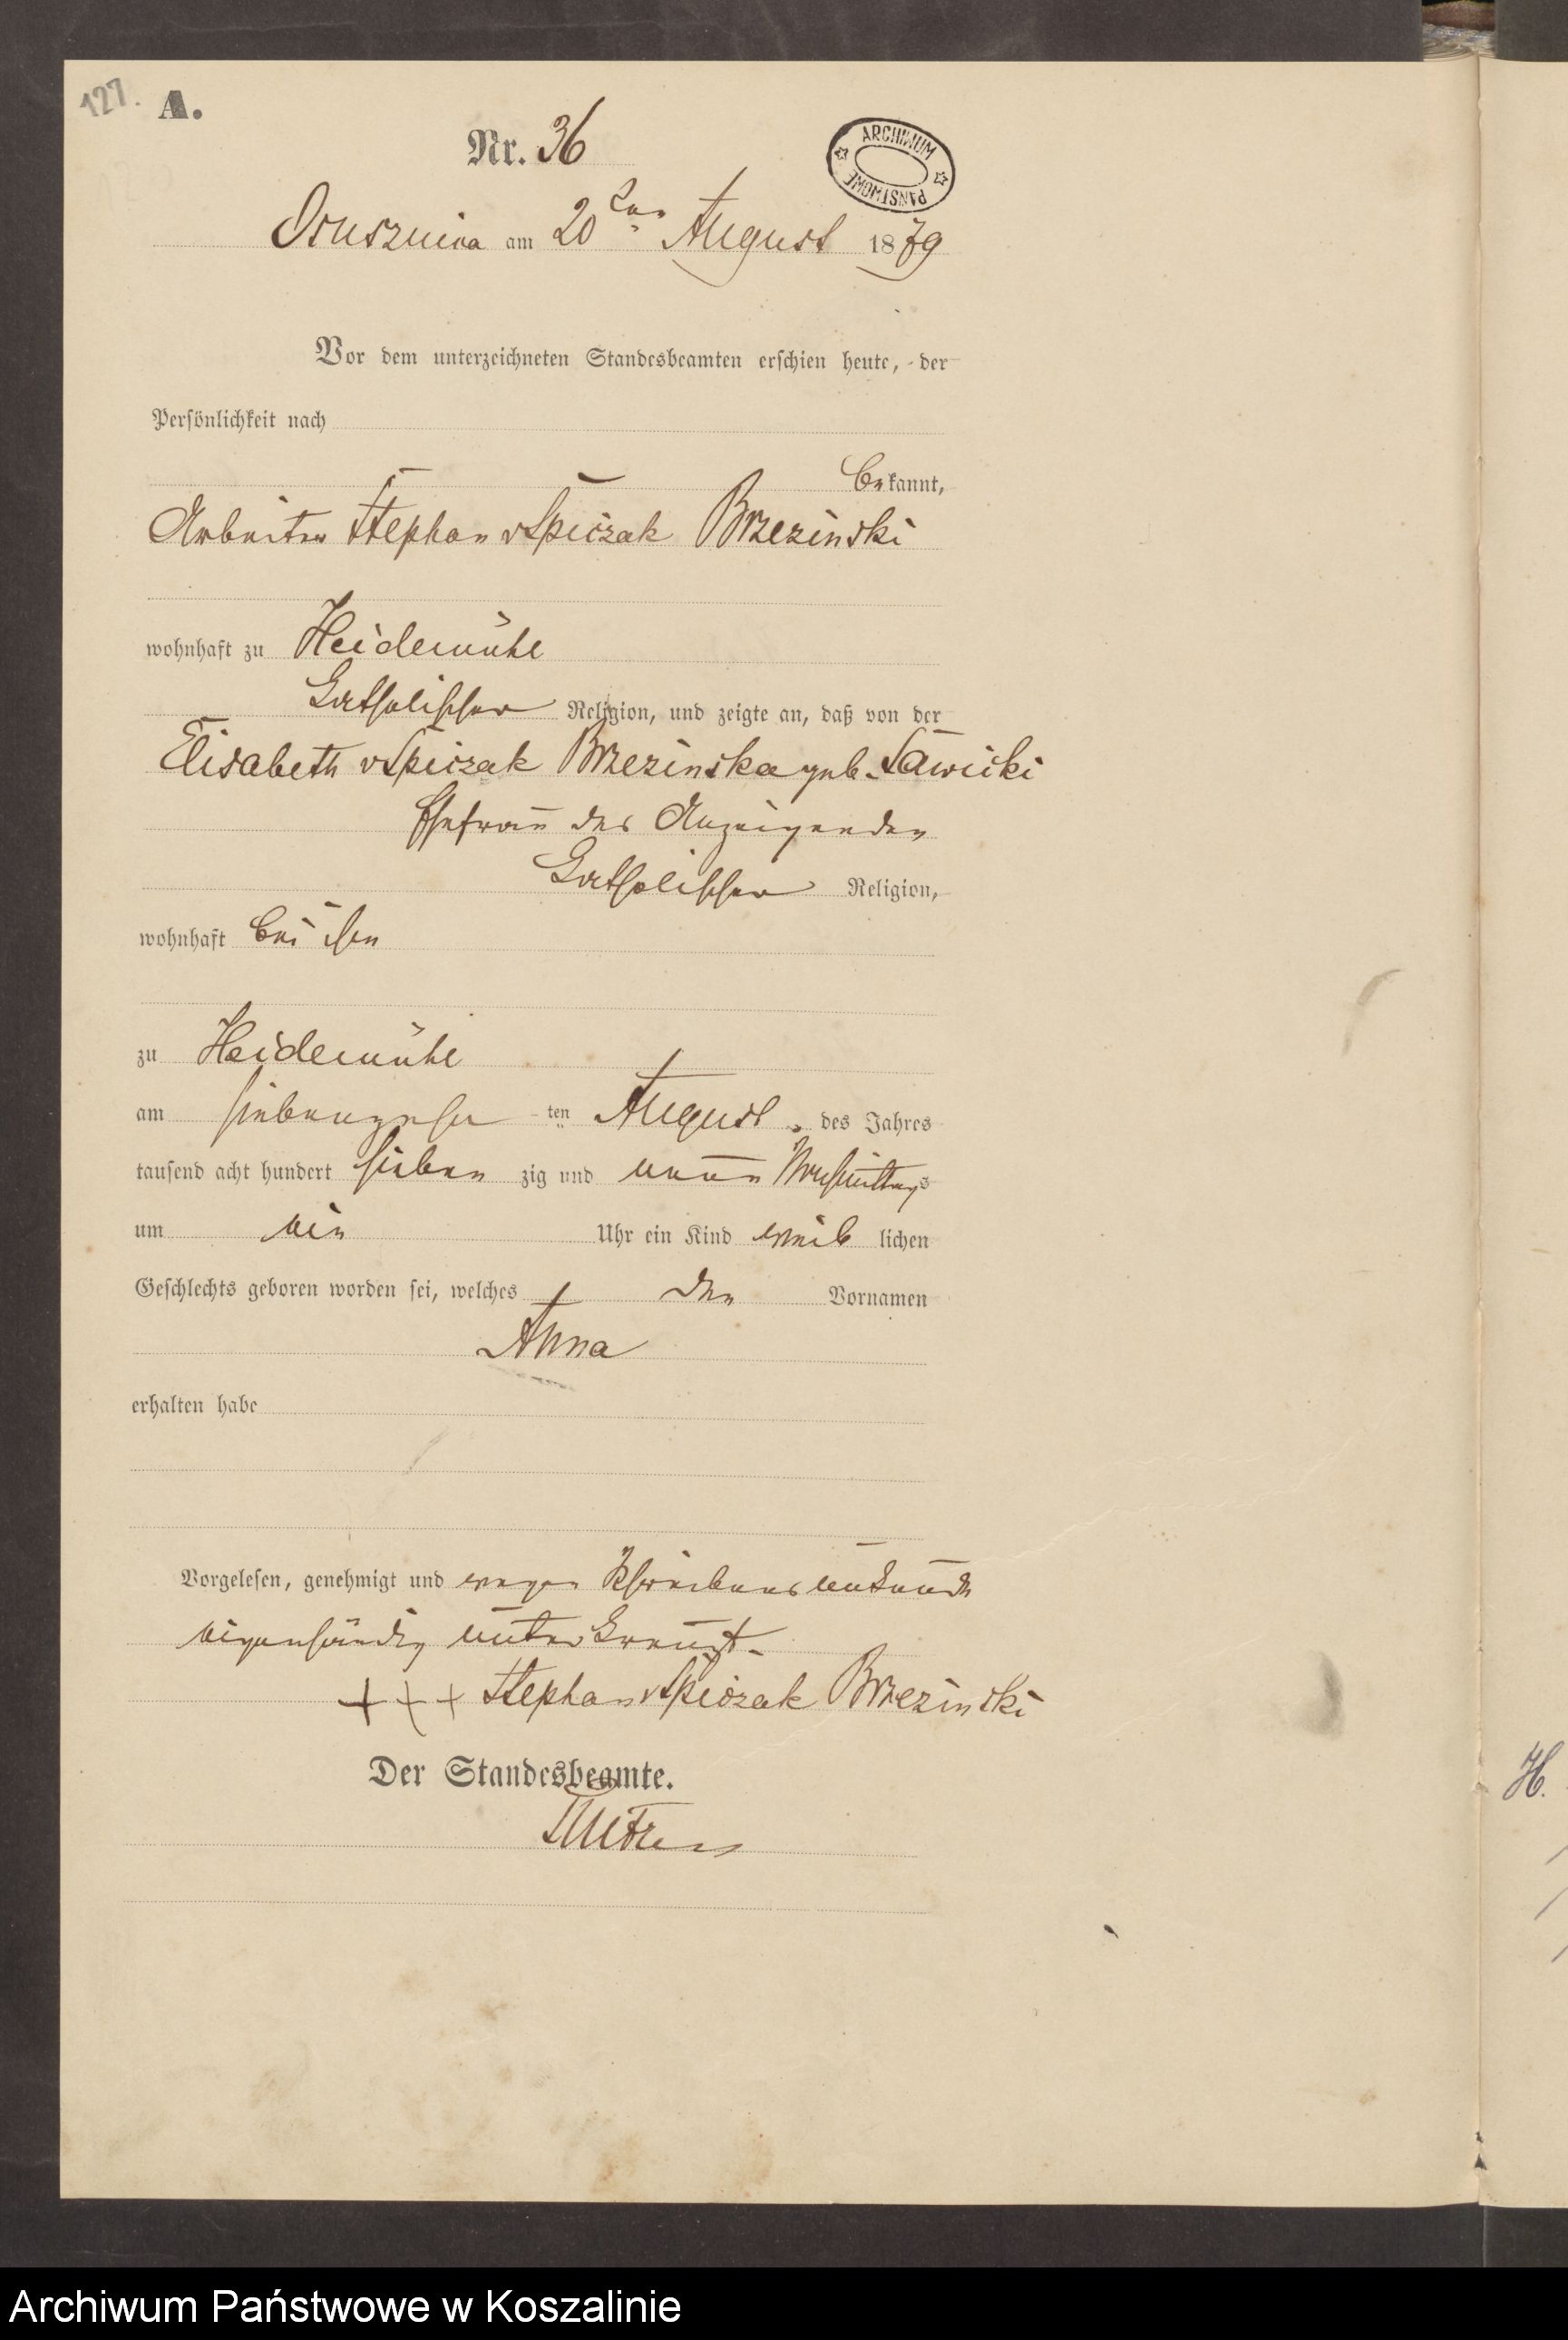 127. A.
Nr. 36
ARCHIWUM PAŃSTWOWE
Osusznica am 20ten August 1879
Vor dem unterzeichneten Standesbeamten erschien heute, der
Persönlichkeit nach
bekannt,
Arbeiter Stephan v Spiczak Brzezinski
wohnhaft zu Heidemühl
katholischer Religion, und zeigte an, daß von der
Elisabeth v Spiczak Brzezinska geb. Sawicki
Ehefrau des Anzeigenden
katholischer Religion,
wohnhaft bei ihm
zu Heidemühl
am siebenzehn ten August des Jahres
tausend acht hundert sieben zig und neun Nachmittags
um ein Uhr ein Kind weib lichen
Geschlechts geboren worden sei, welches den Vornamen
Anna
erhalten habe
Vorgelesen, genehmigt und wegen Schreibensunkunde
eigenhändig unterkreuzt.
+++ Stephan v Spiczak Brzezinski
Der Standesbeamte.
H.
Archiwum Państwowe w Koszalinie